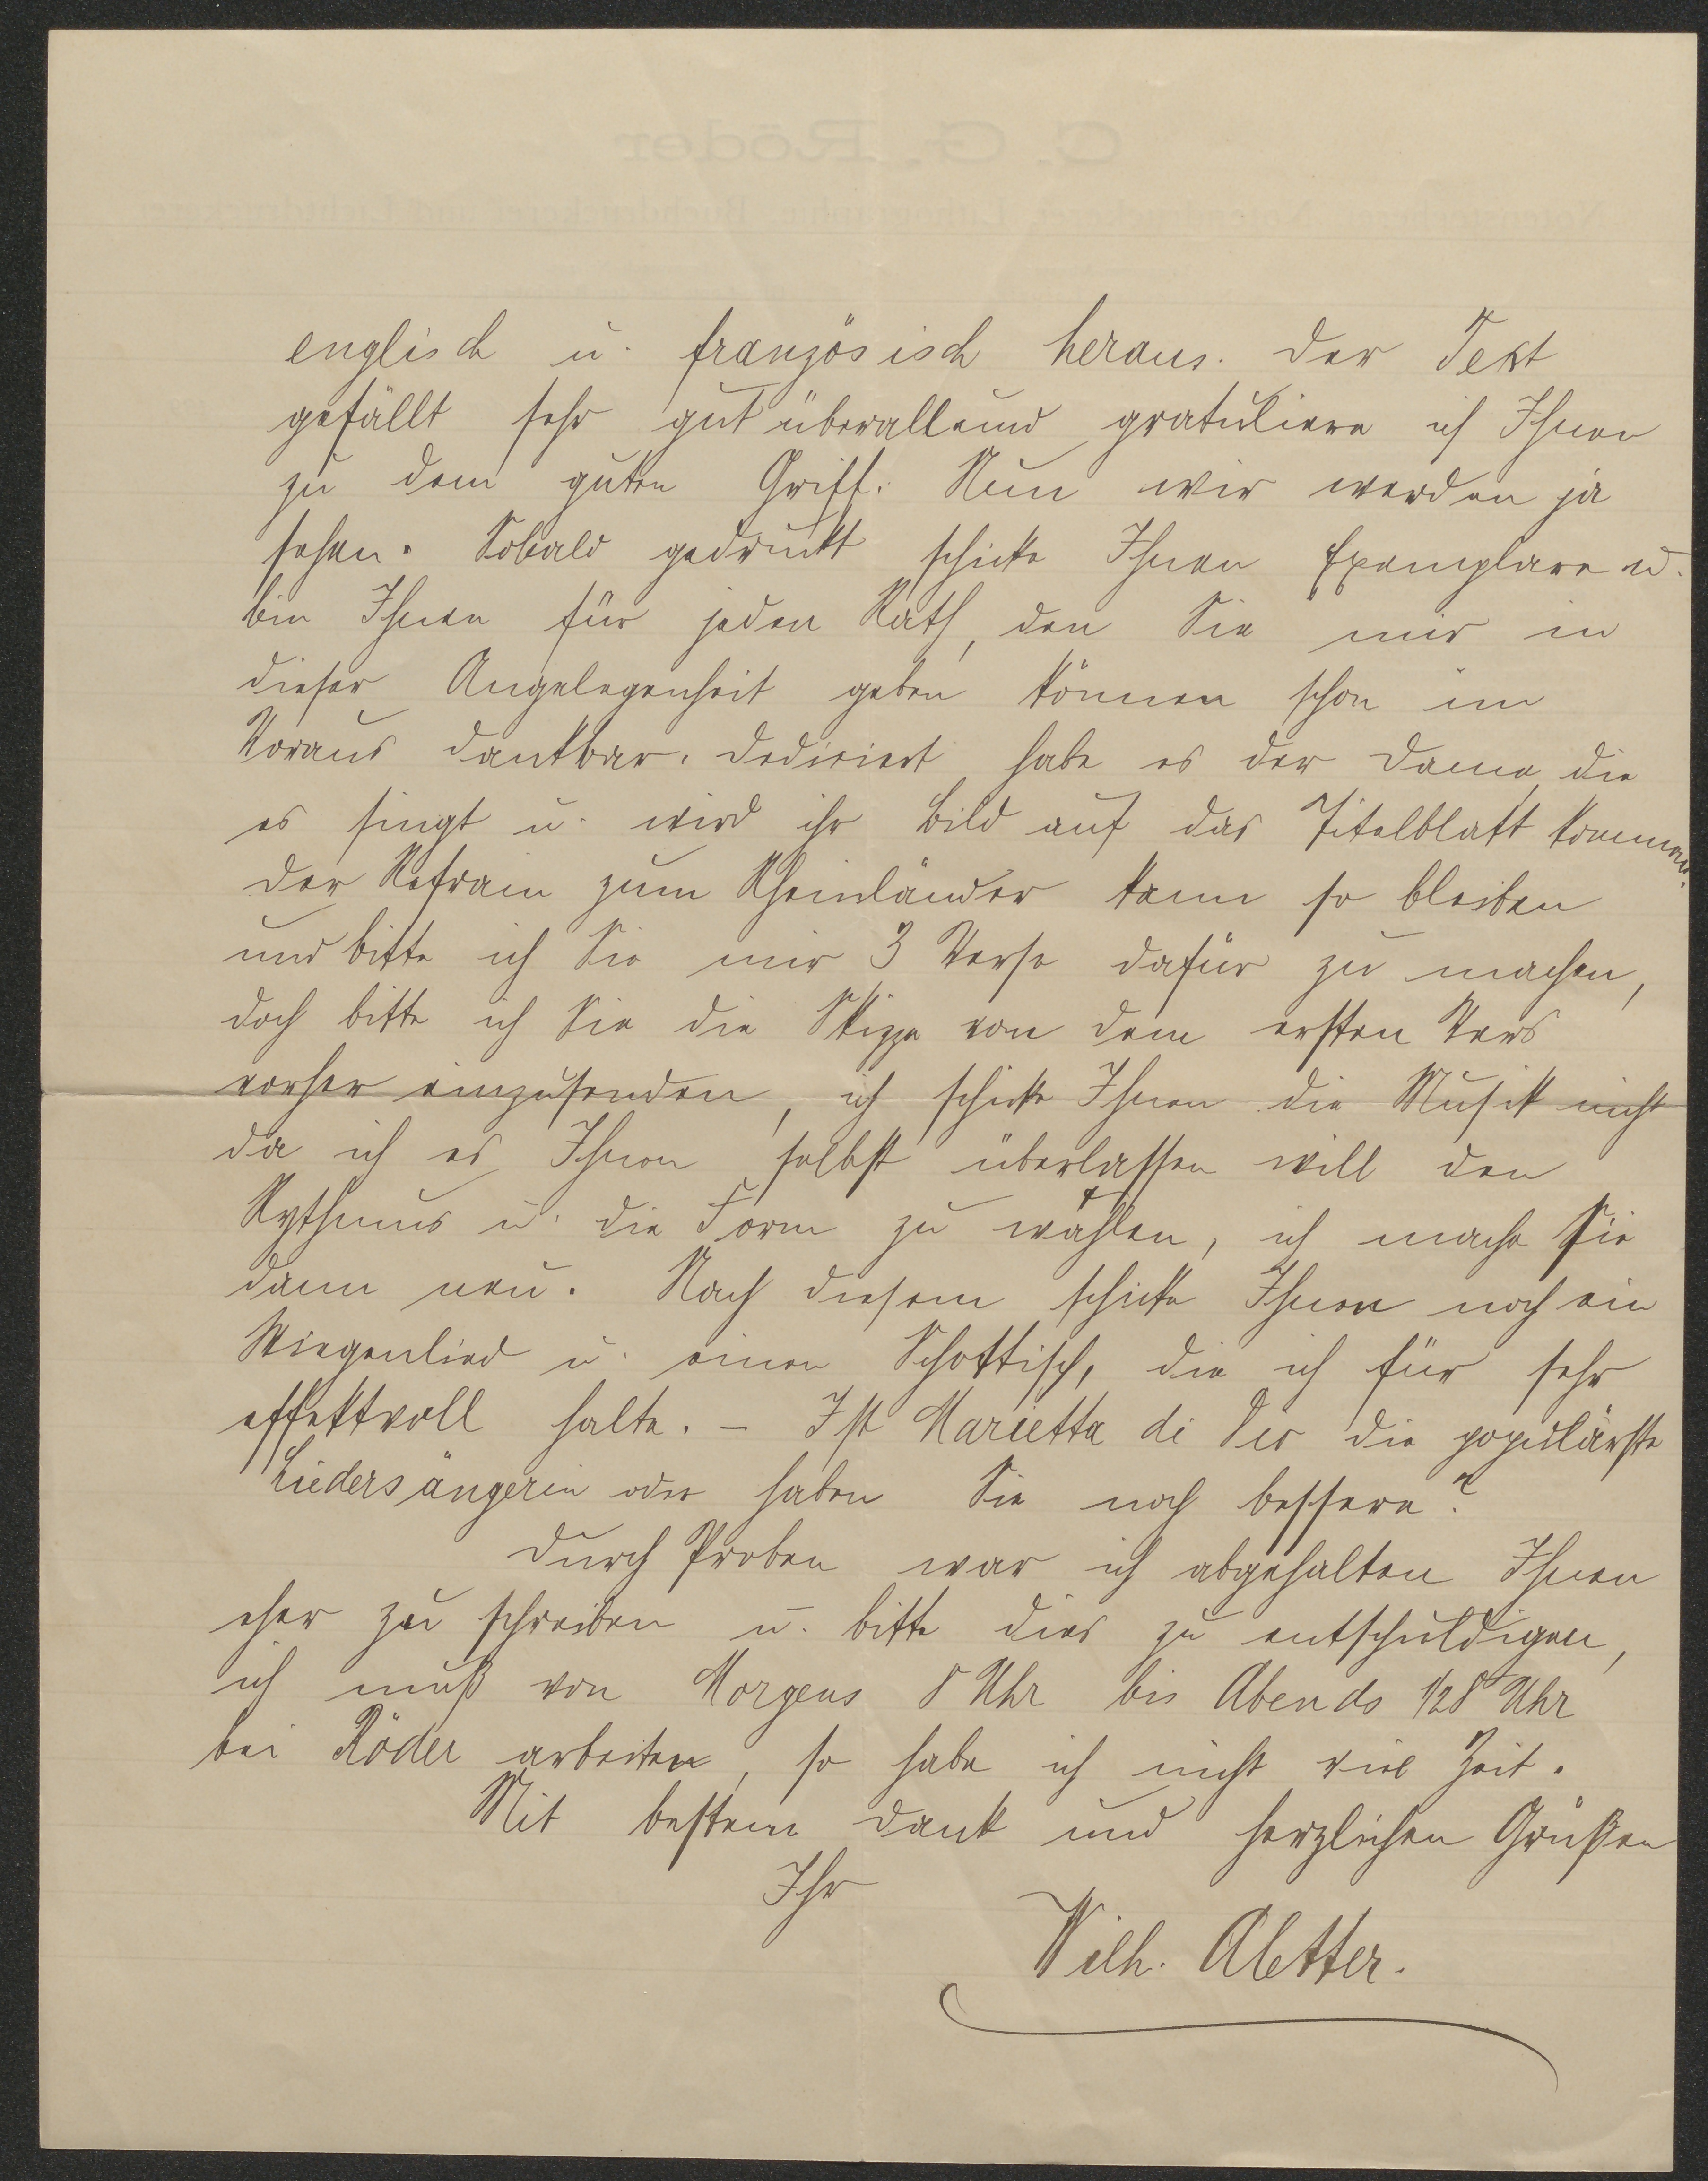 englisch u. französisch heraus. Der Text
gefällt sehr gut überall und gratuliere ich Ihnen
zu dem guten Griff. Nun wir werden ja
sehen. Sobald gedruckt schicke Ihnen Exemplare u.
bin Ihnen für jeden Rath, den Sie mir in
dieser Angelegenheit geben können schon im
Voraus dankbar. Dediciert habe es der Dame, die
es singt u. wird ihr Bild auf das Titelblatt kommen.
Der Refrain zum Rheinländer kann so bleiben
und bitte ich Sie mir 3 Verse dafür zu machen,
doch bitte ich Sie die Skizze von dem ersten Vers
vorher einzusenden, ich schicke Ihnen die Musik nicht
da ich es Ihnen selbst überlassen will den
Rythmus u. die Form zu wählen, ich mache sie
dann neu. Nach diesem schicke Ihnen noch ein
Wiegenlied u. einen Schottisch, die ich für sehr
effektvoll halte. – Ist Marietta di die populärste
Liedersängerin oder haben Sie noch bessere?
Durch Proben war ich abgehalten Ihnen
eher zu schreiben u. bitte dies zu entschuldigen,
ich muß von Morgens 8 Uhr bis Abends 1/28 Uhr
bei Röder arbeiten, so habe ich nicht viel Zeit.
Mit bestem Dank und herzlichen Grüßen
Ihr
Wilh. Aletter.